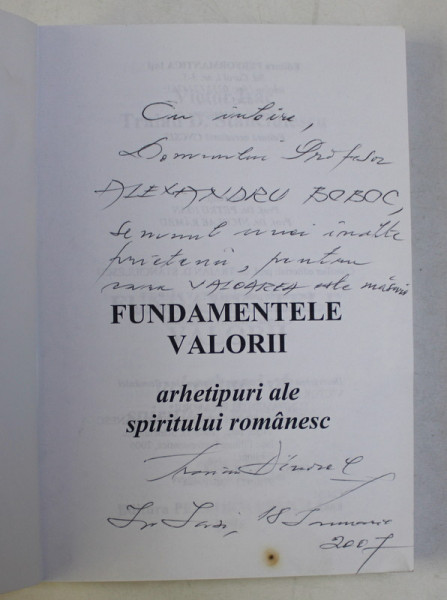 Cu iubire,
Domnului Profesor
ALEXANDRU BOBOC,
semnul unei înalte
prietenii, pentru
care VALOAREA este măsura
FUNDAMENTELE
VALORII
arhetipuri ale
spiritului românesc
Traian D.
În Iași, 18 Ianuarie
2007